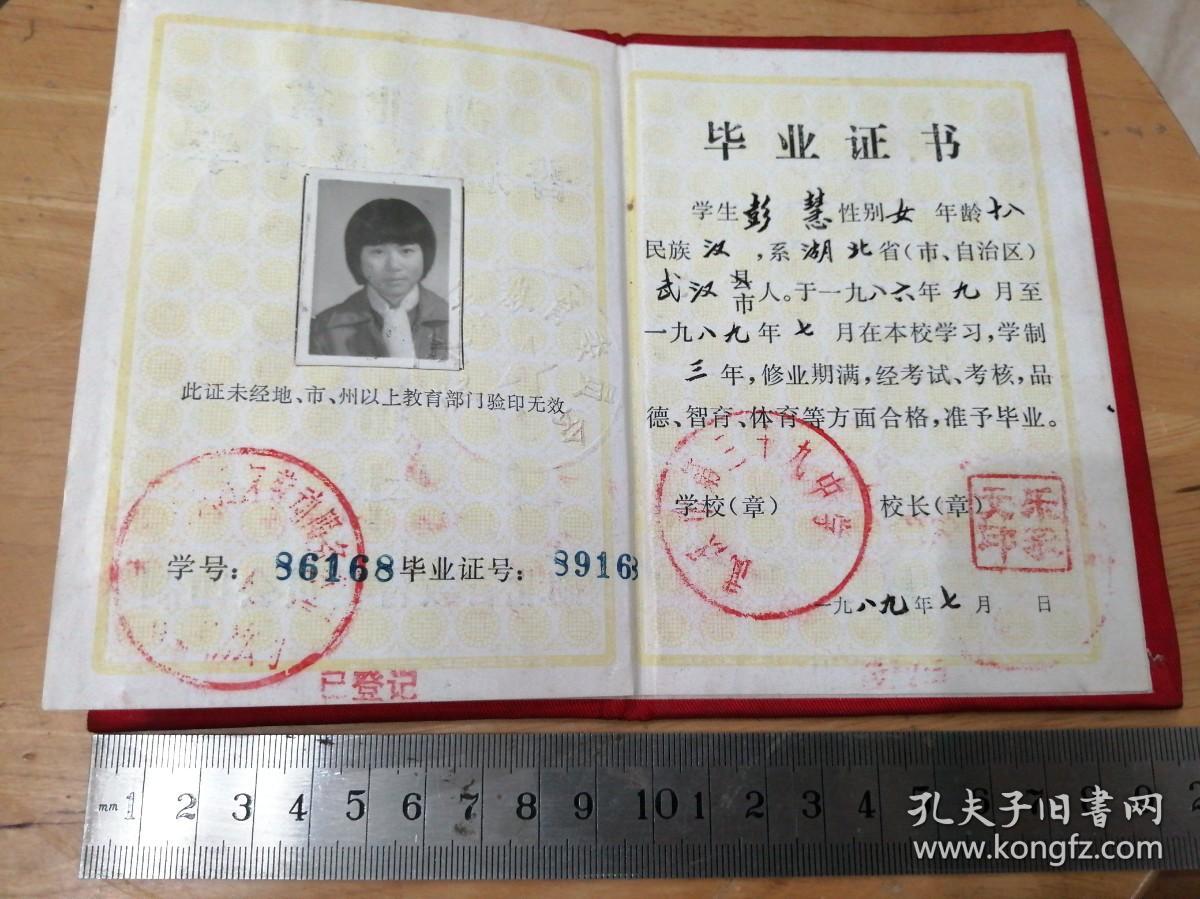 此证未经地、市、州以上教育部门验印无效
学号：86168毕业证号：89168
已登记
毕业证书
学生彭慧性别女 年龄十八
民族汉，系湖北省（市、自治区）
武汉县市人。于一九八六年九月至
一九八九年七月在本校学习，学制
三年，修业期满，经考试、考核，品
德、智育、体育等方面合格，准予毕业。
学校（章） 校长（章）
一九八九年七月 日
mm 1 2 3 4 5 6 7 8 9 10 1 2 3 4 5 6 7 8 9
孔夫子旧書网
www.kongfz.com